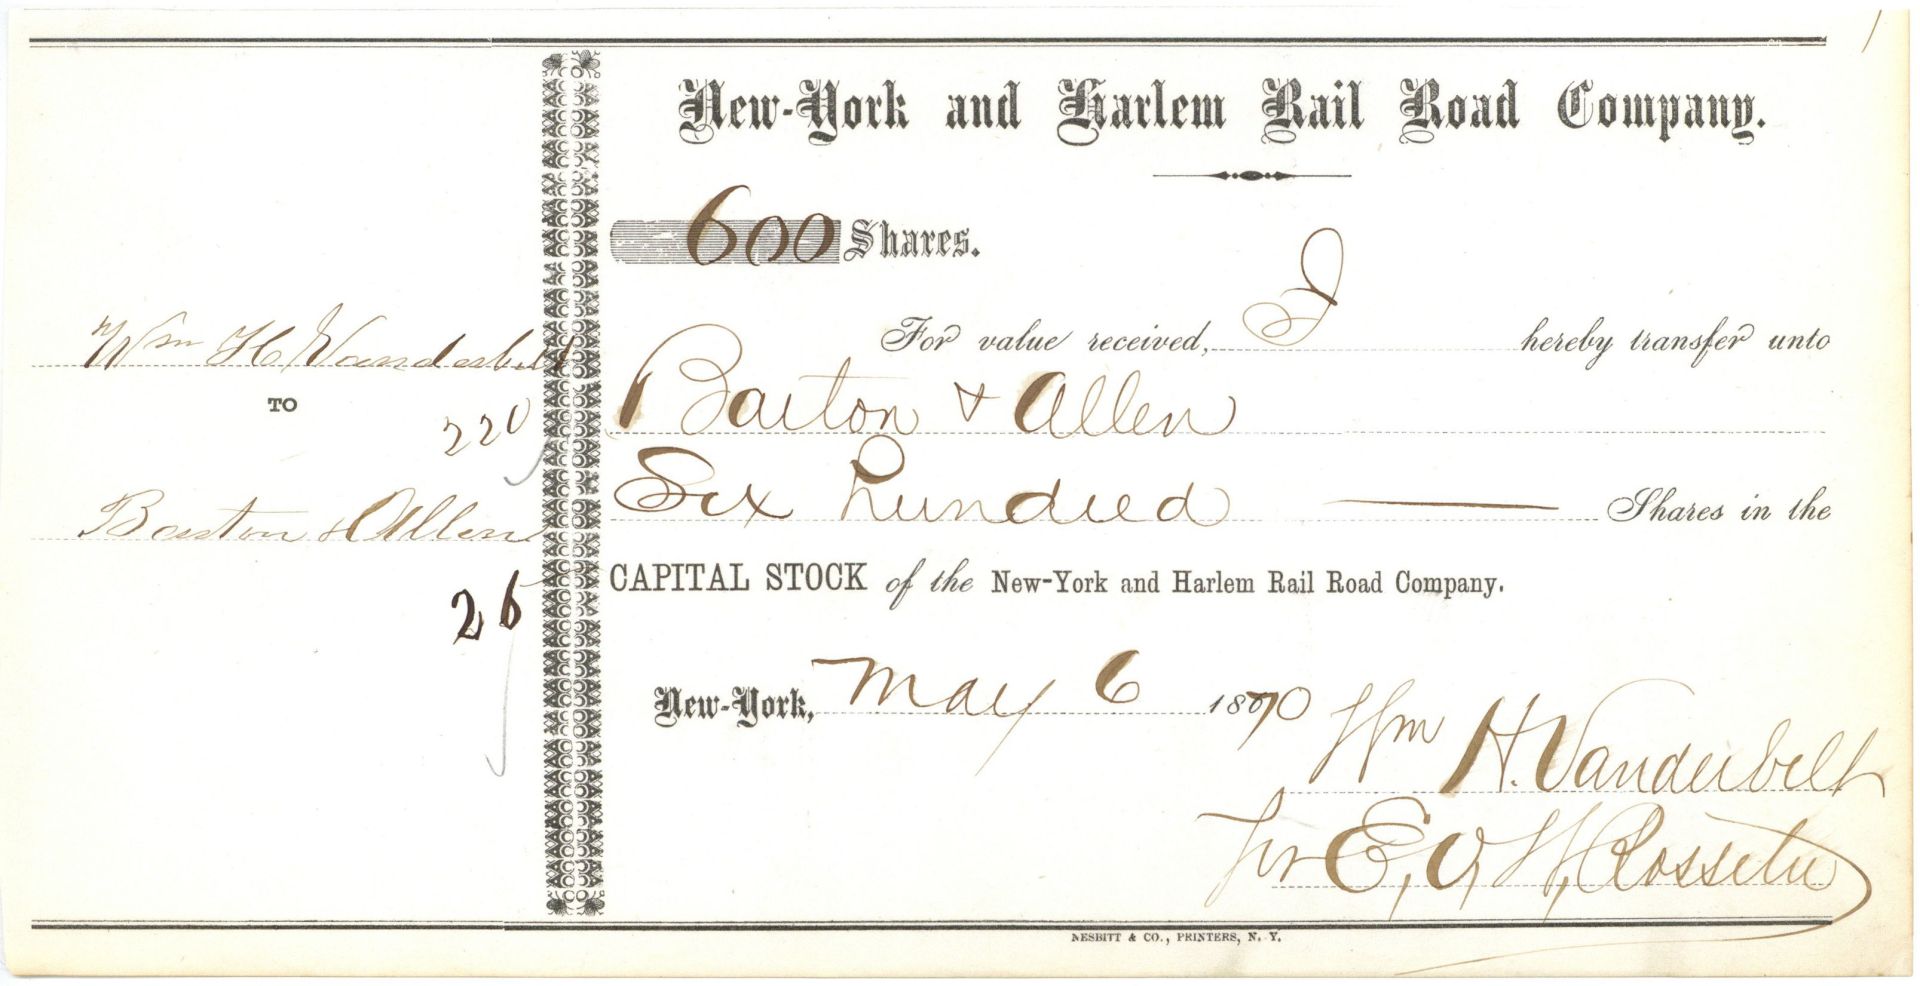 New-York and Harlem Rail Road Company.
600 Shares.
For value received, I hereby transfer unto
Barton & Allen
Six hundred Shares in the
CAPITAL STOCK of the New-York and Harlem Rail Road Company.
New-York, May 6 1870
Wm H. Vanderbilt
pr E. V. W. Rossiter
NESBITT & CO., PRINTERS, N. Y.
Wm H. Vanderbilt
TO
220
Barton & Allen
26